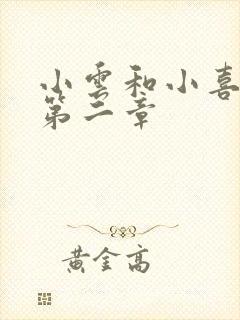 小雲和小喜
第二章
黃金高